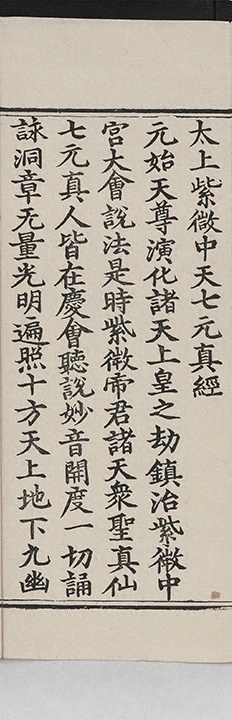 太上紫微中天七元真經
元始天尊演化諸天上皇之劫鎮治紫微中
宮大會說法是時紫微帝君諸天衆聖真仙
七元真人皆在慶會聽說妙音開度一切誦
詠洞章无量光明遍照十方天上地下九幽